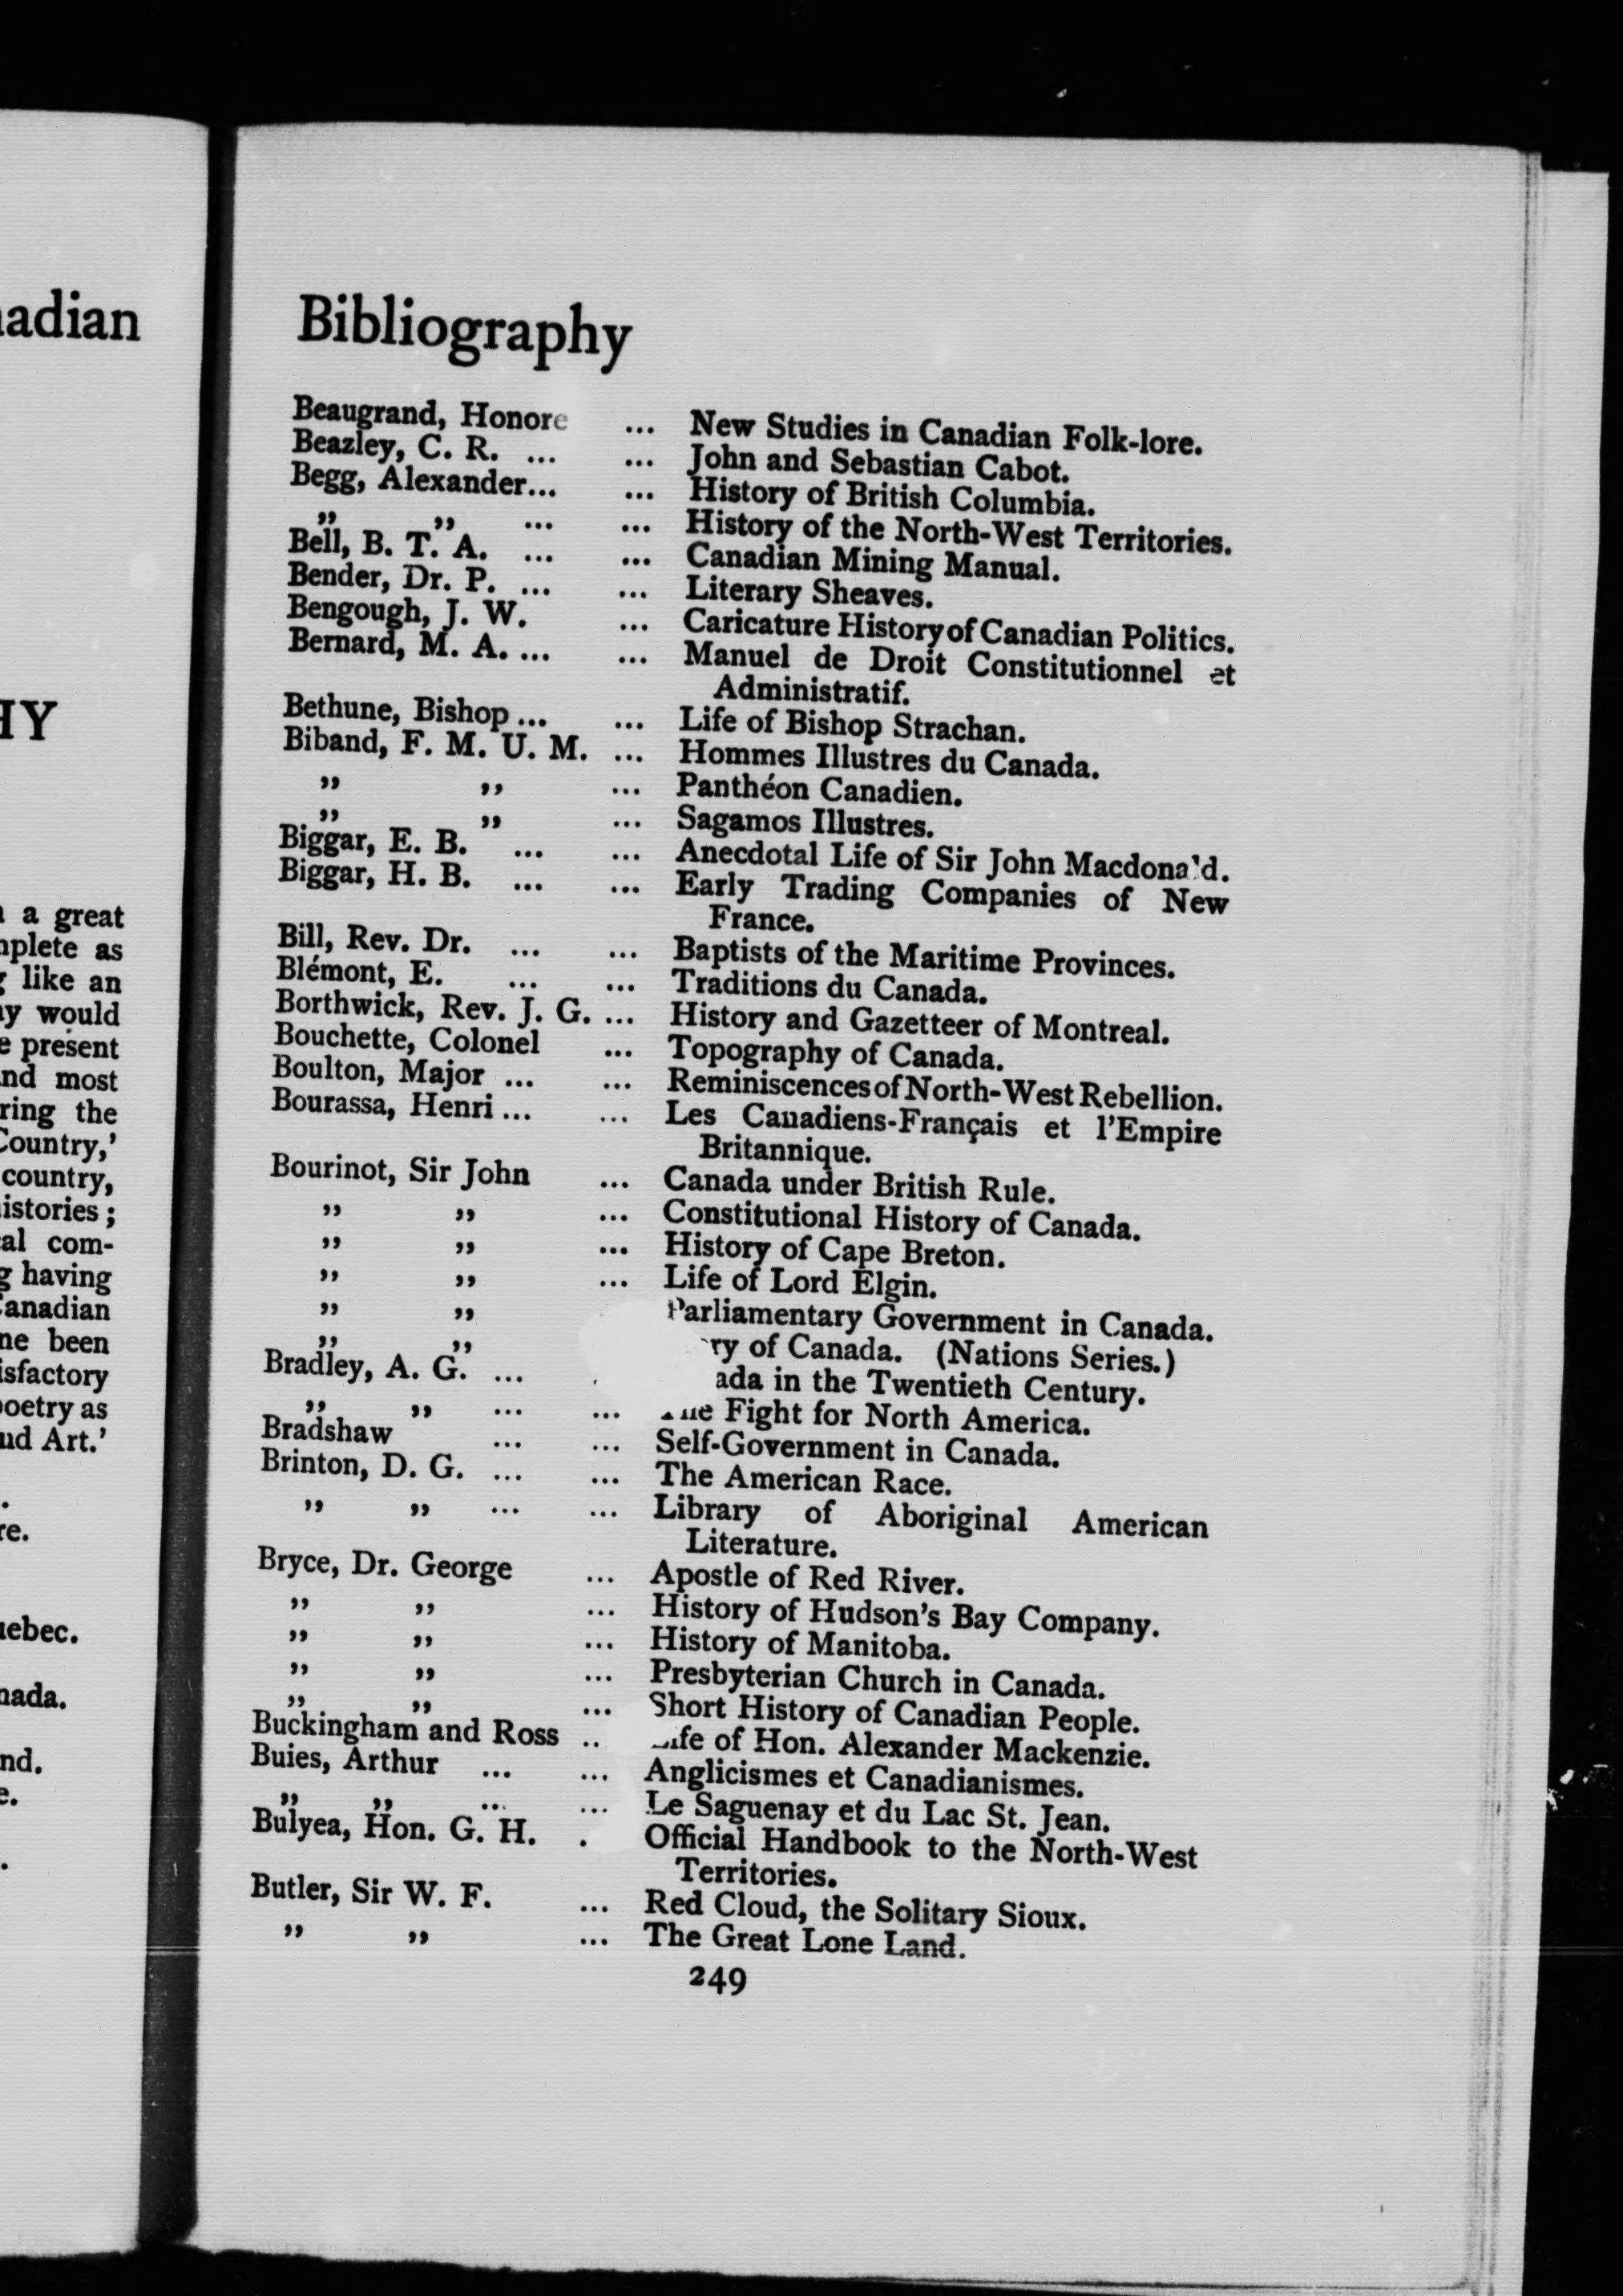 adian
HY
a great
mplete as
like an
y would
e present
nd most
ring the
Country,'
country,
istories;
al com-
g having
anadian
ne been
isfactory
poetry as
nd Art.'
re.
uebec.
nada.
nd.
e.
Bibliography
Beaugrand, Honore ... New Studies in Canadian Folk-lore.
Beazley, C. R. ... ... John and Sebastian Cabot.
Begg, Alexander... ... History of British Columbia.
„ „ ... ... History of the North-West Territories.
Bell, B. T. A. ... ... Canadian Mining Manual.
Bender, Dr. P. ... ... Literary Sheaves.
Bengough, J. W. ... Caricature History of Canadian Politics.
Bernard, M. A. ... ... Manuel de Droit Constitutionnel et
Administratif.
Bethune, Bishop ... ... Life of Bishop Strachan.
Biband, F. M. U. M. ... Hommes Illustres du Canada.
„ „ ... Panthéon Canadien.
„ „ ... Sagamos Illustres.
Biggar, E. B. ... ... Anecdotal Life of Sir John Macdonald.
Biggar, H. B. ... ... Early Trading Companies of New
France.
Bill, Rev. Dr. ... ... Baptists of the Maritime Provinces.
Blémont, E. ... ... Traditions du Canada.
Borthwick, Rev. J. G. ... History and Gazetteer of Montreal.
Bouchette, Colonel ... Topography of Canada.
Boulton, Major ... ... Reminiscences of North-West Rebellion.
Bourassa, Henri ... ... Les Canadiens-Français et l'Empire
Britannique.
Bourinot, Sir John ... Canada under British Rule.
„ „ ... Constitutional History of Canada.
„ „ ... History of Cape Breton.
„ „ ... Life of Lord Elgin.
„ „ Parliamentary Government in Canada.
„ „ ry of Canada. (Nations Series.)
Bradley, A. G. ... ada in the Twentieth Century.
„ „ ... ... The Fight for North America.
Bradshaw ... ... Self-Government in Canada.
Brinton, D. G. ... ... The American Race.
„ „ ... ... Library of Aboriginal American
Literature.
Bryce, Dr. George ... Apostle of Red River.
„ „ ... History of Hudson's Bay Company.
„ „ ... History of Manitoba.
„ „ ... Presbyterian Church in Canada.
„ „ ... Short History of Canadian People.
Buckingham and Ross .. Life of Hon. Alexander Mackenzie.
Buies, Arthur ... ... Anglicismes et Canadianismes.
„ „ ... ... Le Saguenay et du Lac St. Jean.
Bulyea, Hon. G. H. . Official Handbook to the North-West
Territories.
Butler, Sir W. F. ... Red Cloud, the Solitary Sioux.
„ „ ... The Great Lone Land.
249